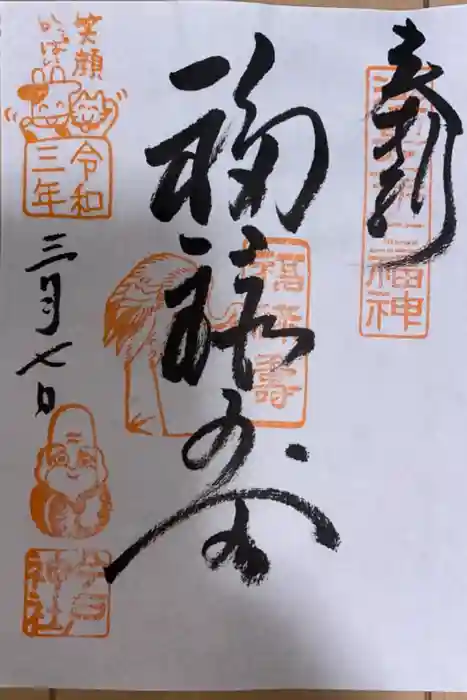 奉拝
福神
福禄寿
福禄寿
笑顔
いっぱい
令和
三年
三月七日
今戸
神社